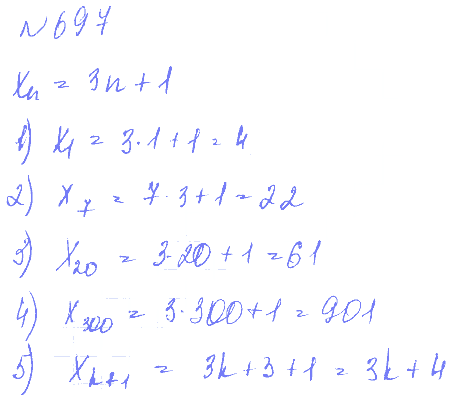 №697
xₙ = 3n + 1
1) x₁ = 3·1 + 1 = 4
2) x₇ = 7·3 + 1 = 22
3) x₂₀ = 3·20 + 1 = 61
4) x₃₀₀ = 3·300 + 1 = 901
5) xₖ₊₁ = 3k + 3 + 1 = 3k + 4